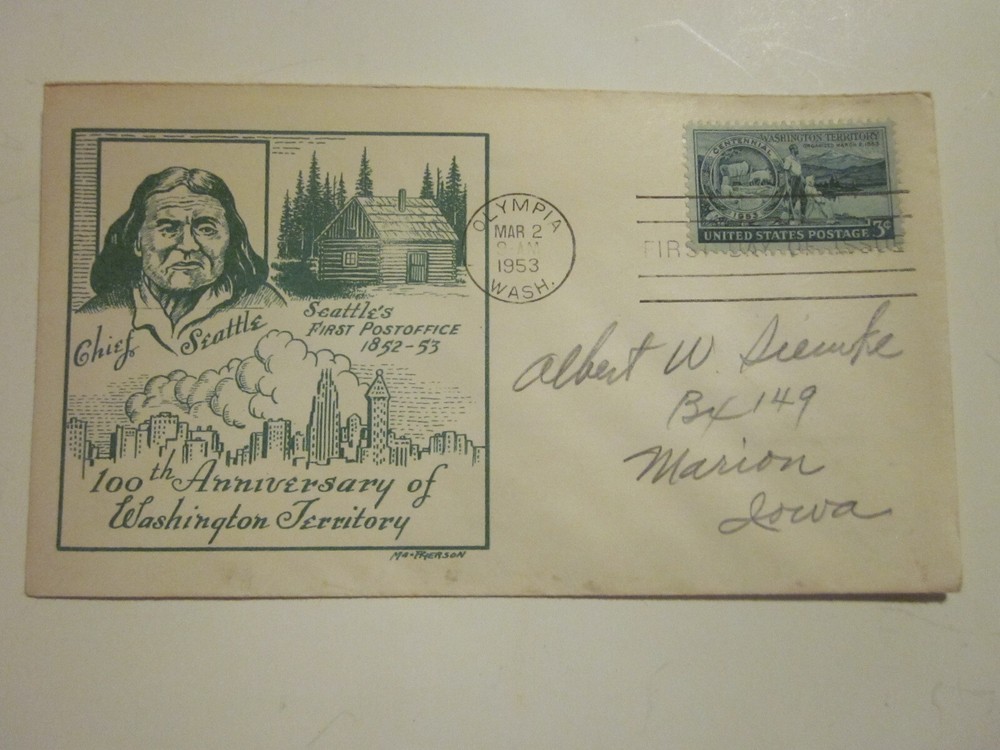 Chief Seattle
Seattle's
FIRST POSTOFFICE
1852-53
100th Anniversary of
Washington Territory
OLYMPIA
MAR 2
9-AM
1953
WASH.
WASHINGTON TERRITORY
ORGANIZED MARCH 2, 1853
CENTENNIAL
1953
UNITED STATES POSTAGE 3¢
FIRST DAY OF ISSUE
Albert W.
Bx 149
Marion
Iowa